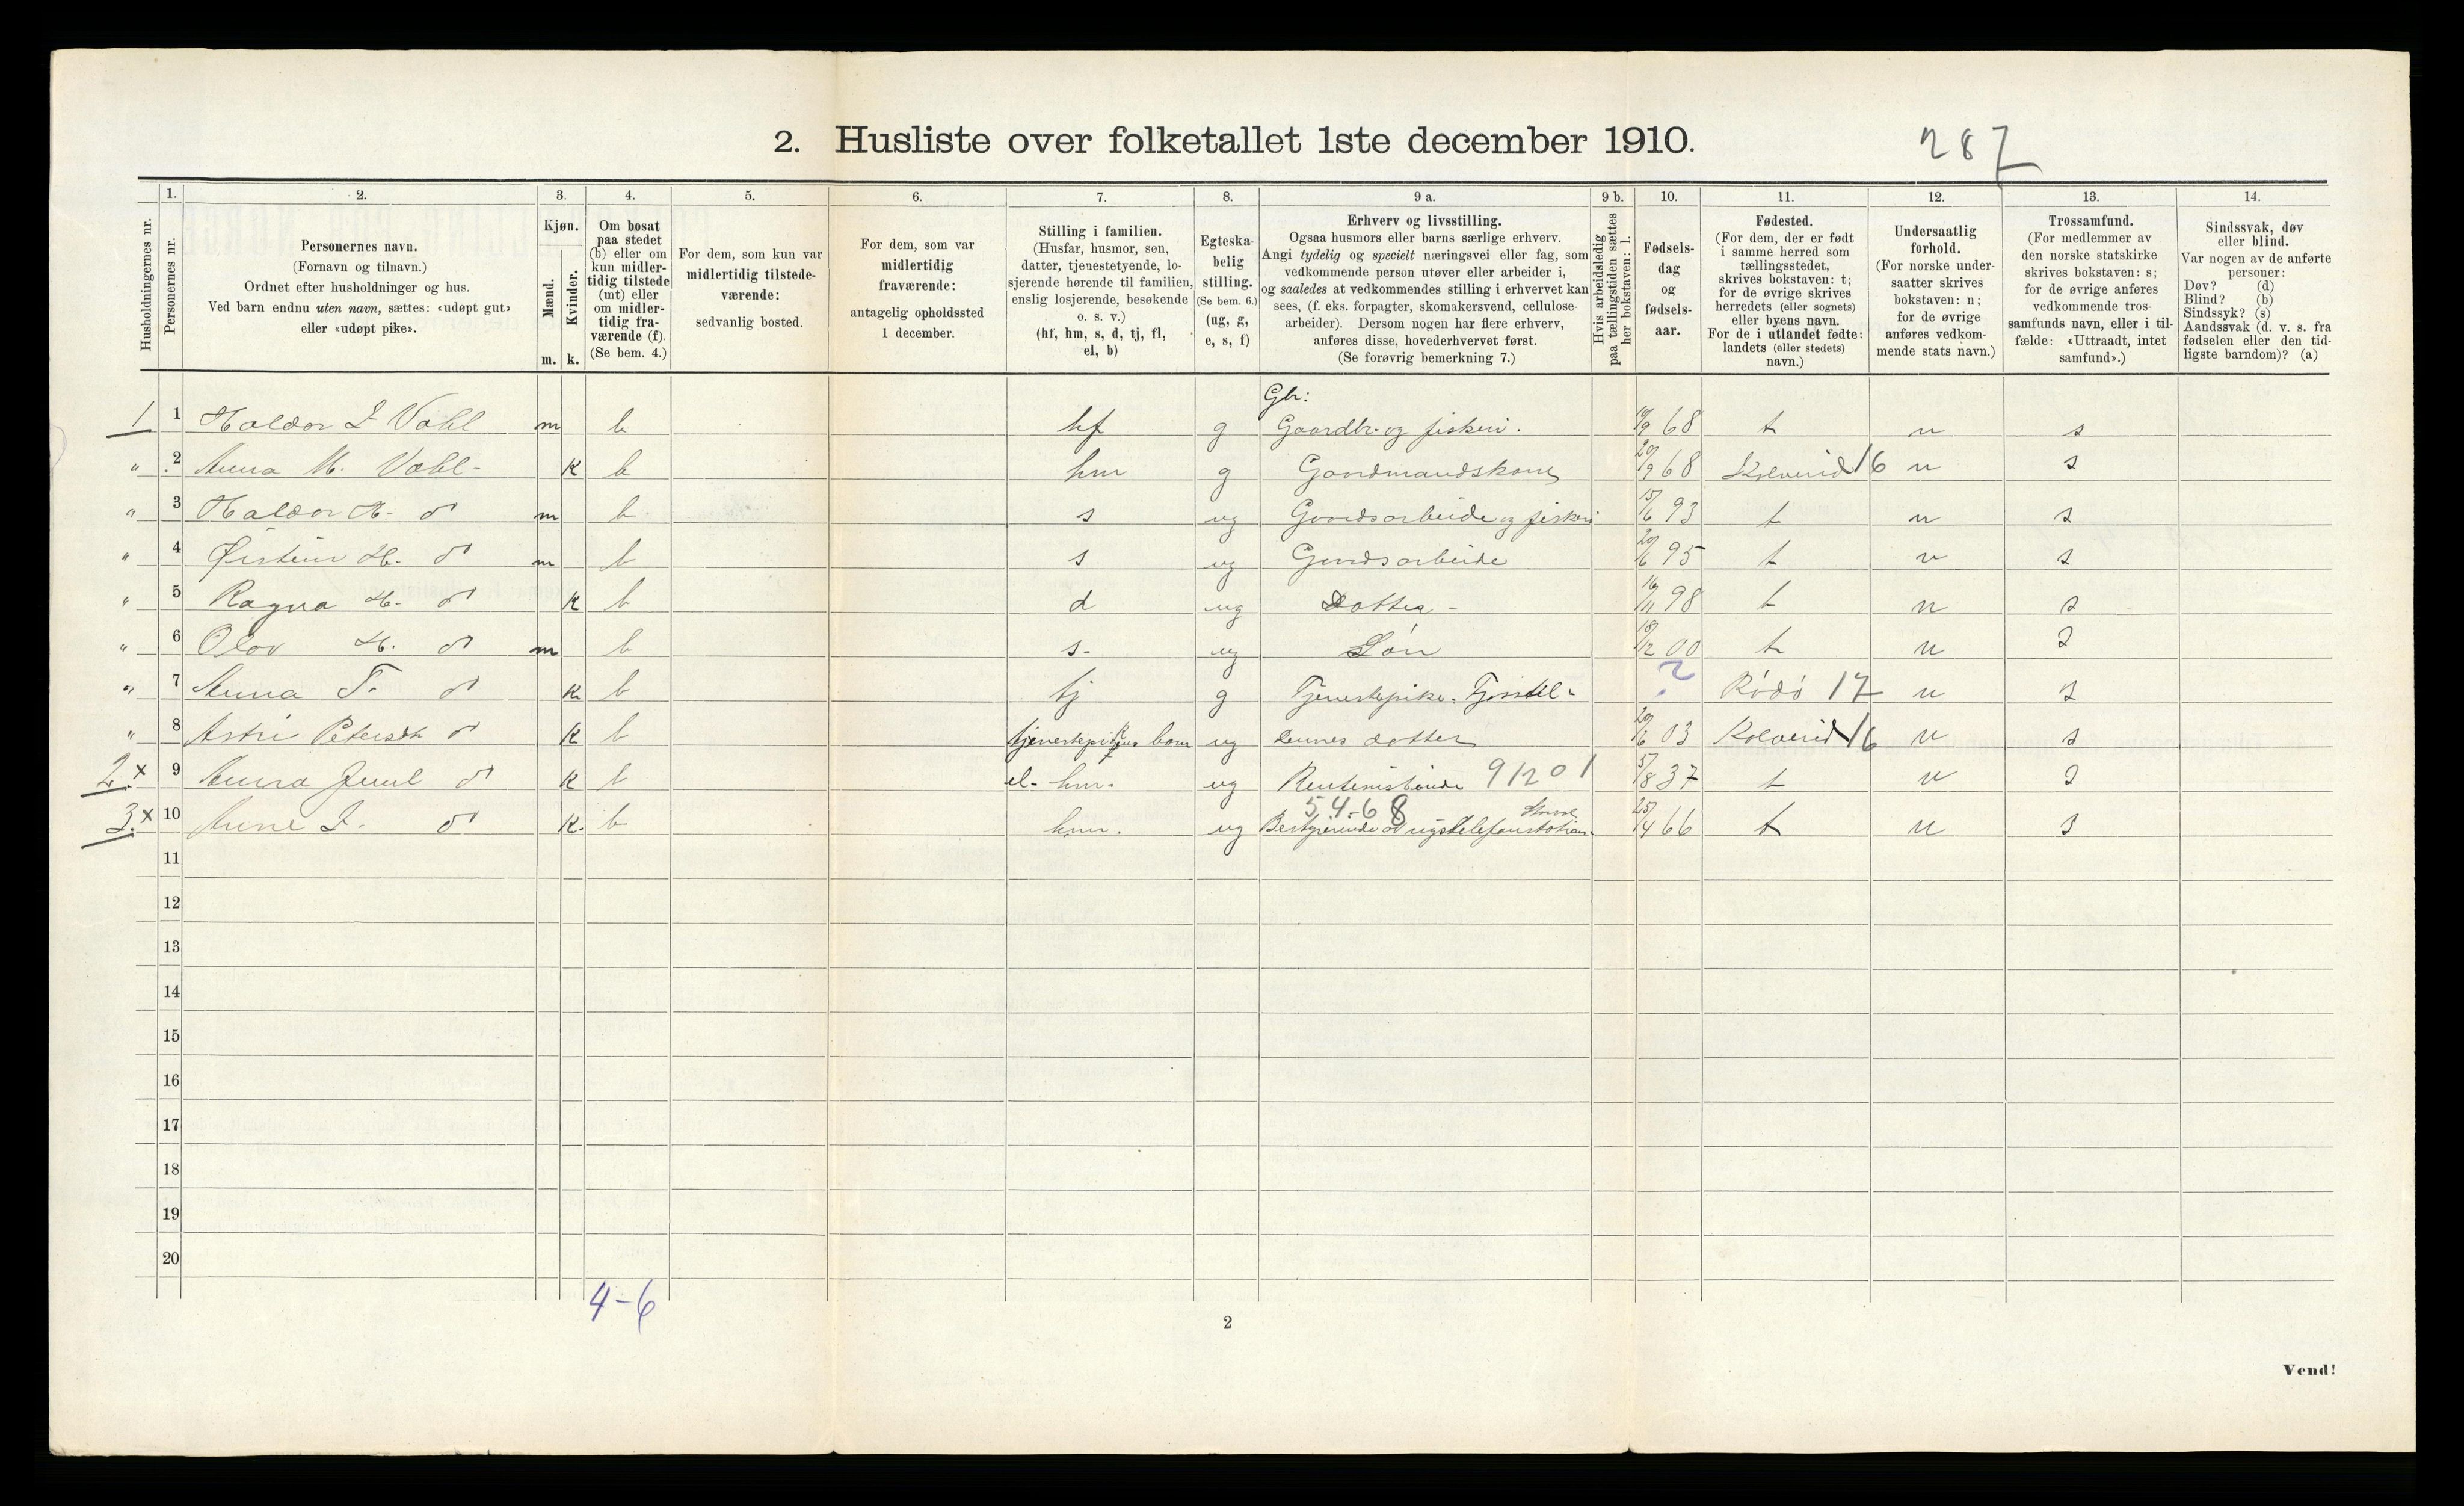 2. Husliste over folketallet 1ste december 1910.
287
Husholdningernes nr.
1.
Personernes nr.
2.
Personernes navn.
(Fornavn og tilnavn.)
Ordnet efter husholdninger og hus.
Ved barn endnu uten navn, sættes: «udøpt gut»
eller «udøpt pike».
3.
Kjøn.
Mænd.
Kvinder.
m. k.
4.
Om bosat
paa stedet
(b) eller om
kun midler-
tidig tilstede
(mt) eller
om midler-
tidig fra-
værende (f).
(Se bem. 4.)
5.
For dem, som kun var
midlertidig tilstede-
værende:
sedvanlig bosted.
6.
For dem, som var
midlertidig
fraværende:
antagelig opholdssted
1 december.
7.
Stilling i familien.
(Husfar, husmor, søn,
datter, tjenestetyende, lo-
sjerende hørende til familien,
enslig losjerende, besøkende
o. s. v.)
(hf, hm, s, d, tj, fl,
el, b)
8.
Egteska-
belig
stilling.
(Se bem. 6.)
(ug, g,
e, s, f)
9 a.
Erhverv og livsstilling.
Ogsaa husmors eller barns særlige erhverv.
Angi tydelig og specielt næringsvei eller fag, som
vedkommende person utøver eller arbeider i,
og saaledes at vedkommendes stilling i erhvervet kan
sees, (f. eks. forpagter, skomakersvend, cellulose-
arbeider). Dersom nogen har flere erhverv,
anføres disse, hovederhvervet først.
(Se forøvrig bemerkning 7.)
9 b.
Hvis arbeidsledig
paa tællingstiden sættes
her bokstaven: l.
10.
Fødsels-
dag
og
fødsels-
aar.
11.
Fødested.
(For dem, der er født
i samme herred som
tællingsstedet,
skrives bokstaven: t;
for de øvrige skrives
herredets (eller sognets)
eller byens navn.
For de i utlandet fødte:
landets (eller stedets)
navn.)
12.
Undersaatlig
forhold.
(For norske under-
saatter skrives
bokstaven: n;
for de øvrige
anføres vedkom-
mende stats navn.)
13.
Trossamfund.
(For medlemmer av
den norske statskirke
skrives bokstaven: s;
for de øvrige anføres
vedkommende tros-
samfunds navn, eller i til-
fælde: «Uttraadt, intet
samfund».)
14.
Sindssvak, døv
eller blind.
Var nogen av de anførte
personer:
Døv? (d)
Blind? (b)
Sindssyk? (s)
Aandssvak (d. v. s. fra
fødselen eller den tid-
ligste barndom)? (a)
Gbr:
1 1 Haldor I Vahl m b hf g Gaardbr. og fiskeri. /9 68 t n s
" 2 Anna M. Vahl- k b hm g Gaardmandskone 20/9 68 Kolvereid 16 n s
" 3 Haldor H. do m b s ug Gaardsarbeide og fiskeri 15/6 93 t n s
" 4 Øistein H. do m b s ug Gaardsarbeide 20/6 95 t n s
" 5 Ragna H. do k b d ug Datter - 16/11 98 t n s
" 6 Olav H. do m b s- ug Søn 18/12 00 t n s
" 7 Anna F. do k b tj g Tjenestepike. ? Rödö 17 n s
" 8 Astri do k b tjenestepikens barn ug dennes datter 20/6 03 Kolvereid 16 n s
2. x 9 Anna Juul do k b el- hm. ug 91201 5/8 37 t n s
54-68
3. x 10 Anne I. do k. b hm. ug Bestyrerinde av rigstelefonstation. 25/4 66 t n s
11
12
13
14
15
16
17
18
19
20
4-6
2
Vend!